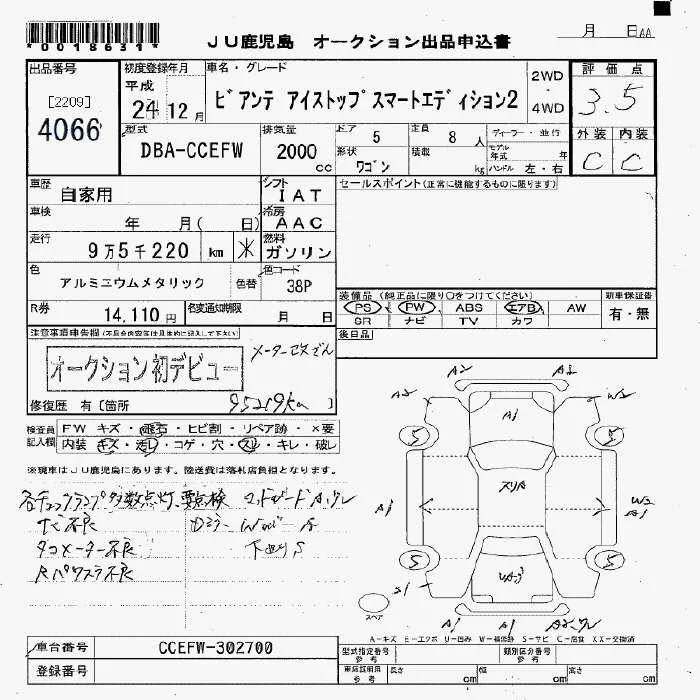 *0018631*
JU鹿児島 オークション出品申込書
月 日AA
出品番号
[2209]
4066
初度登録年月
平成
24 12 月
車名・グレード
ビアンテ アイストップスマートエディション2
2WD
・
4WD
評価点
3.5
外装 内装
C C
型式
DBA-CCEFW
排気量
2000
cc
ドア 5
定員 8 人
形状 ワゴン
積載 kg
ディーラー・並行
モデル年式 年
ハンドル 左・右
車歴
自家用
シフト
IAT
セールスポイント(正常に機能するものに限ります)
車検
年 月( 日)
冷房
AAC
走行
9万5千220 km
燃料
ガソリン
色
アルミニウムメタリック
色替
色コード
38P
R券
14,110 円
名変通知期限
月 日
装備品(純正品に限り○をつけてください)
PS PW ABS エアB AW
SR ナビ TV カワ
新車保証書
有・無
後日品
注意事項車告欄(不具合内容等は具体的に記入して下さい)
オークション初デビュー
95219km
修復歴 有〔箇所 〕
検査員
記入欄
FW キズ・飛石・ヒビ割・リペア跡・×要
内装 キズ・汚レ・コゲ・穴・スレ・キレ・破レ
※現車はJU鹿児島にあります。陸送費は落札店負担となります。
タコメーター不良
A2 A2
A2 W2
A1
5 5
A1
W2
A1
5 5
A1 A1
スペア
A-キズ E-エクボ U-凹み W-補修跡 S-サビ C-腐食 XX-交換済
車台番号
CCEFW-302700
登録番号
型式指定番号
参考
類別区分番号
参考
車庫証明用
参考
長さ cm
幅 cm
高さ cm